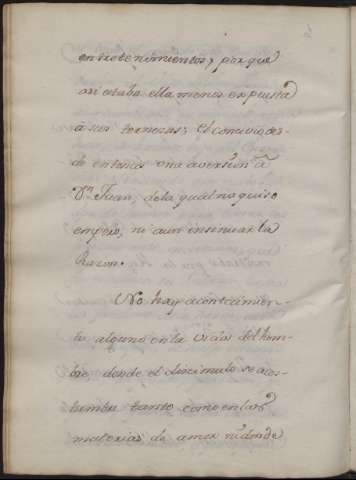 entretenimientos, porque
asi estaba ella menos expuesta
á sus ternezas; él concivio des-
de entonces una aversion á
Dn Juan, dela qual no quiso
empero, ni aun insinuar la
Razon.
No hay acontecimien-
to alguno en la vida del hom-
bre, donde el disimulo se acos-
tumbre tanto como en las
materias de amor ni donde